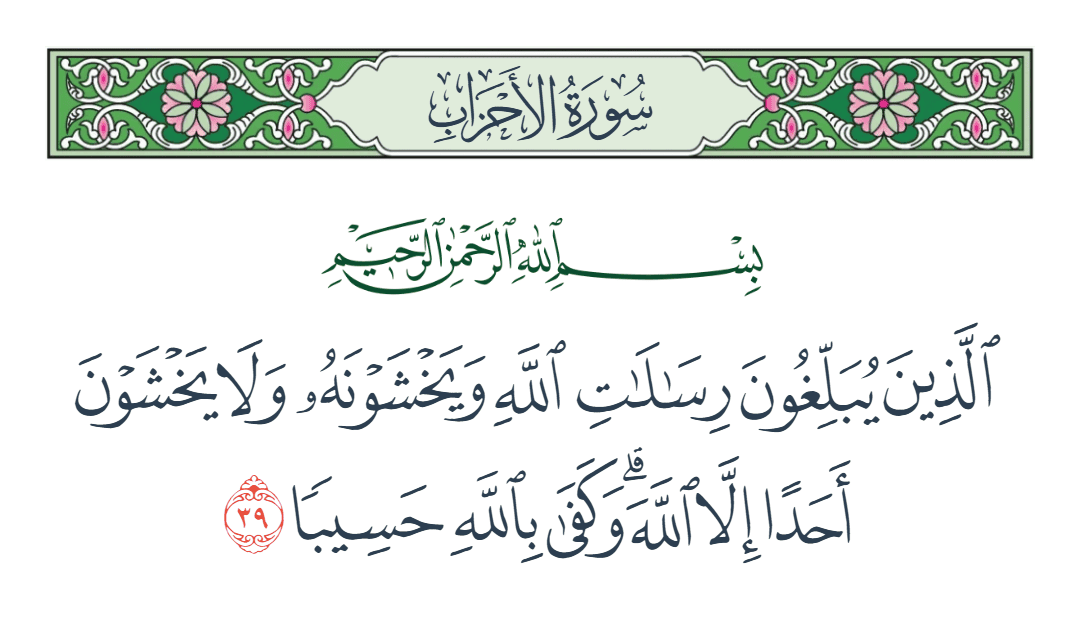 سُورَةُ الأَحْزَابِ
بِسْمِ ٱللَّهِ ٱلرَّحْمَٰنِ ٱلرَّحِيمِ
ٱلَّذِينَ يُبَلِّغُونَ رِسَٰلَٰتِ ٱللَّهِ وَيَخْشَوْنَهُۥ وَلَا يَخْشَوْنَ
أَحَدًا إِلَّا ٱللَّهَۗ وَكَفَىٰ بِٱللَّهِ حَسِيبًا ٣٩